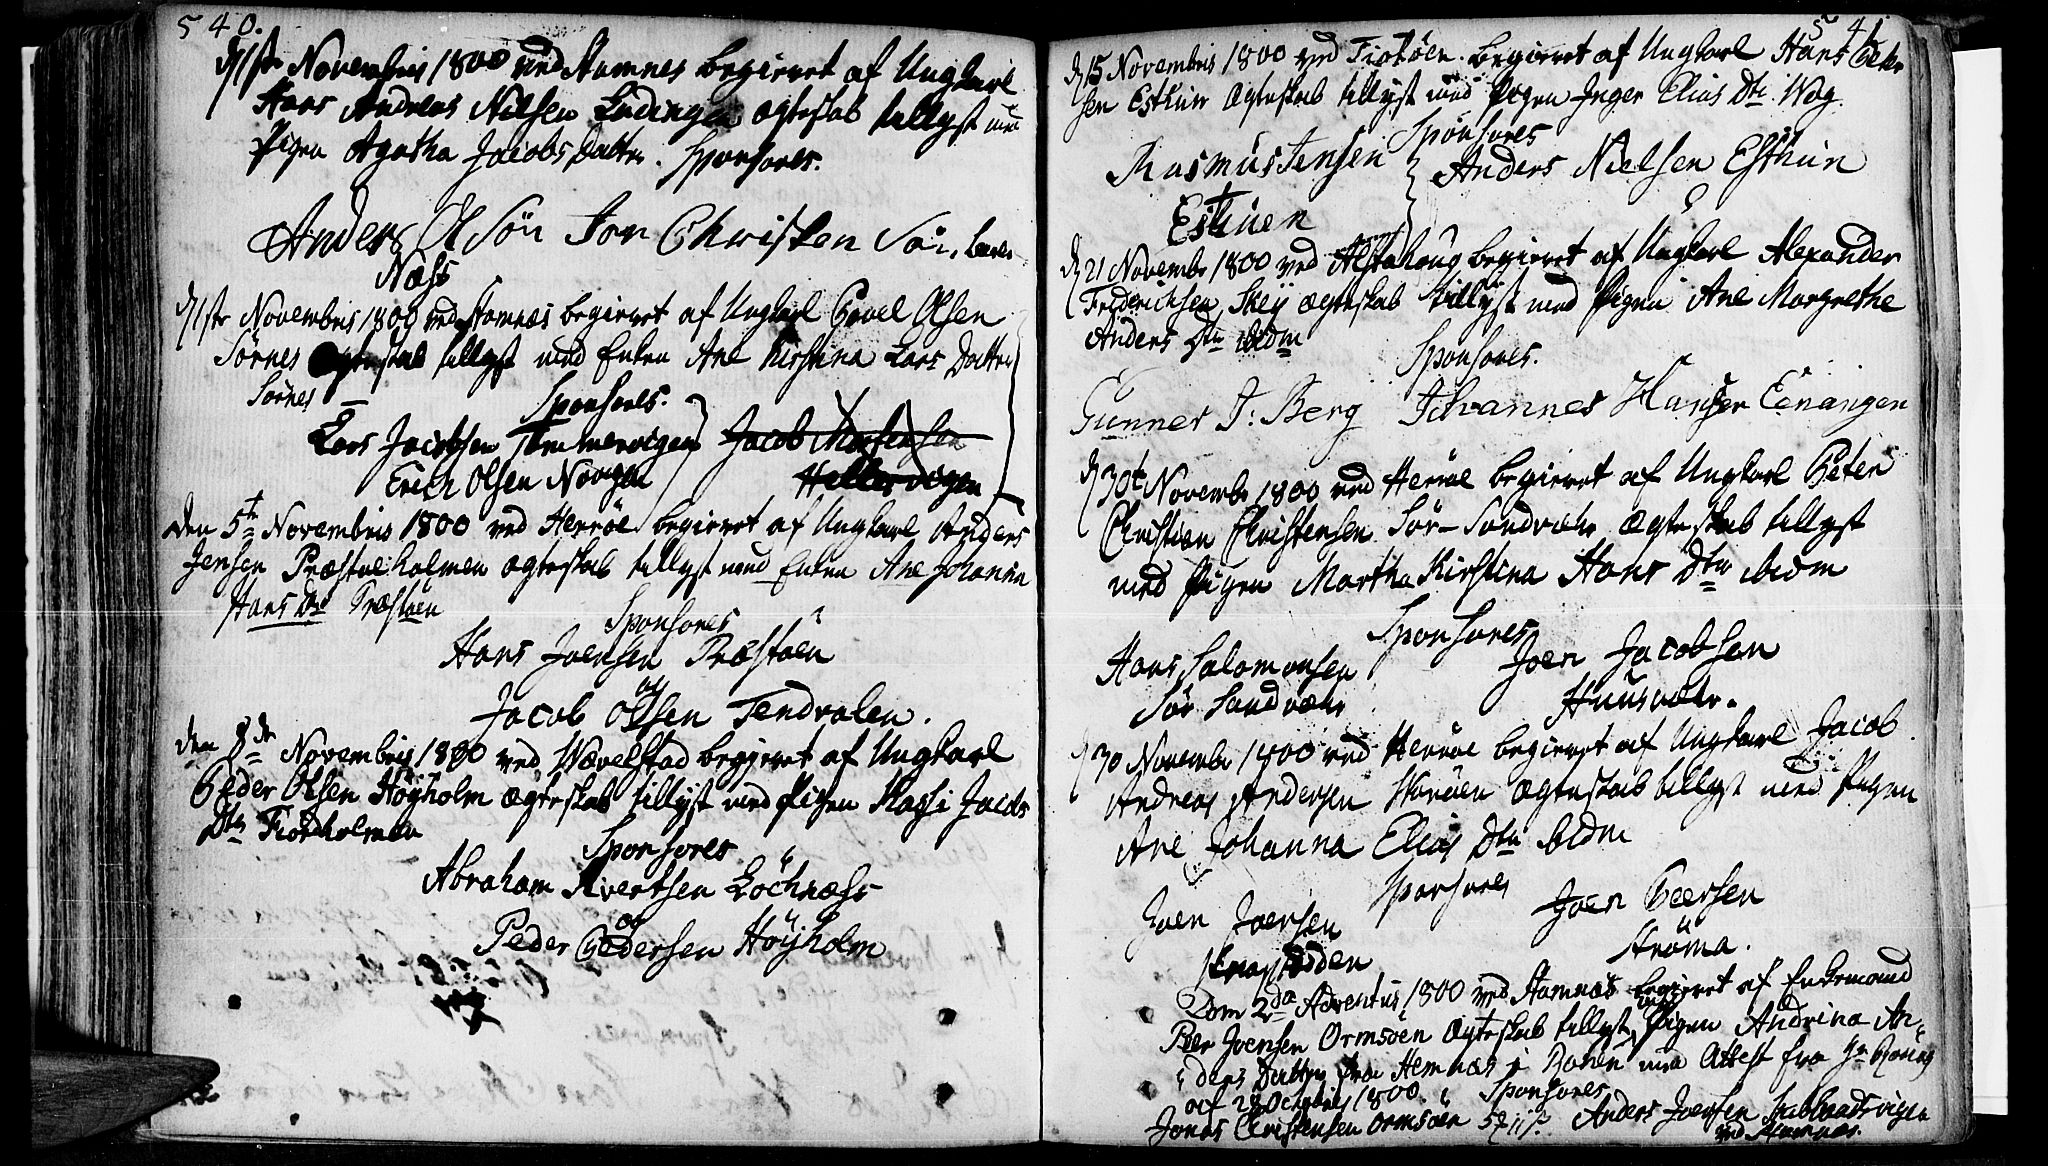 540.
d 1ste Novembris 1800 ved Stamnes begieret af Ungkarl
Hans Andreas Nielsen Lødingen Ægteskab tillyst med
Pigen Agatha Jacobs Datter. Sponsores.
Anders OlSøn Jon ChristenSøn.
Næss
d 1ste Novembris 1800 ved Stamnæs begieret af Ungkarl Povel Olsen
Sørnes Ægteskab tillyst med Enken Ane Kirstina Lars Datter
Sørnes
Sponsores.
Lars Jacobsen Tømmervigen Jacob Mortensen
Erich Olsen Novgen Hellesvigen
Den 5te Novembris 1800 ved Herrøe begieret af Ungkarl Anders
Jensen Præstøeholmen Ægteskab tillyst med Enken Ane Johanna
Hans Dtr Præstøen
Sponsores
Hans Joensen Præstøen
og
Jacob Olsen Tendvalen.
Den 8de Novembris 1800 ved Wævelstad begieret af Ungkarl
Peder Olsen Høyholm Ægteskab tillyst med Pigen Massi Jacobs
Dtr Fiordholmen
Sponsores
Abraham Kvertsen Løchnæss
og
Peder Pedersen Høyholm
541
d 15 Novembris 1800 ved Tiøtøen begieret af Ungkarl Hans Peter
sen Esthun Ægteskab tillyst med Pigen Inger Elias Dtr Wog.
Sponsores
Rasmus Jensen Anders Nielsen Esthun
Esthuen
d 21 Novembr 1800 ved Alstahoug begieret af Ungkarl Alexander
Friderichsen Skey Ægteskab tillyst med Pigen Ane Margrethe
Anders Dtr ibidm
Sponsores.
Gunner J: Berg Johannes Hansen Eenangen
d 30te Novembr 1800 ved Herrøe begieret af Ungkarl Peter
Christian Christensen Sør-Sandvær Ægteskab tillyst
med Pigen Martha Kirstina Hans Dtr ibidm
Sponsores
Hans Salomonsen Joen Jacobsen
Sør Sandvær Huusvær.
d 30 Novembr 1800 ved Herrøe begieret af Ungkarl Jacob
Andreas Andersen Ægteskab tillyst med Pigen
Ane Johanna Elias Dtr ibidm
Sponsores
Joen Joensen Joen Peersen
Strøma.
Dom 2da Adventus 1800 ved Stamnæs begieret af Enkemand
Peer Joensen Ormsøen Ægteskab tillyst med Pigen Andrina An-
ders Datter fra Hemnæs i Ranen med Attest fra Hr
af 28 Octobris 1800. Sponsores
Jonas Christensen Ormsøen Anders Joensen Stabbaadsvigen
ved Stamnæs.